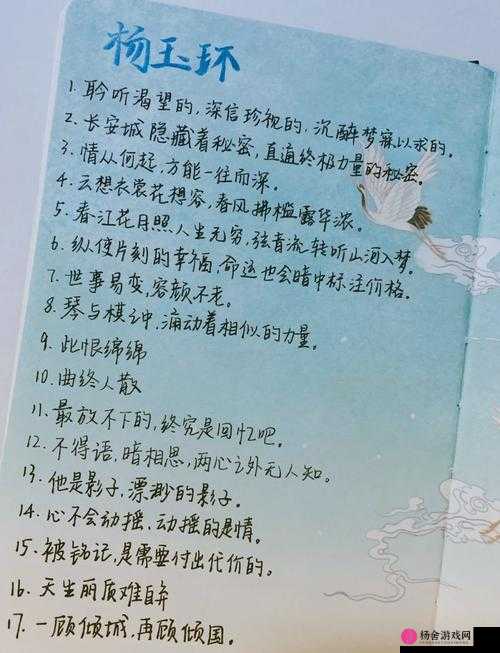 杨玉环
1. 聆听渴望的,深信珍视的,沉醉梦寐以求的。
2. 长安城隐藏着秘密,直通终极力量的秘密。
3. 情从何起,方能一往而深。
4. 云想衣裳花想容,春风拂槛露华浓。
5. 春江花月照人生无穷,弦音流转听山河入梦。
6. 纵使片刻的幸福,命运也会暗中标注价格。
7. 世事易变,容颜不老。
8. 琴与棋之中,涌动着相似的力量。
9. 此恨绵绵
10. 曲终人散
11. 最放不下的,终究是回忆吧。
12. 不得语,暗相思,两心之外无人知。
13. 他是影子,漂渺的影子。
14. 心不会动摇,动摇的是情。
15. 被铭记,是需要付出代价的。
16. 天生丽质难自弃
17. 一顾倾城,再顾倾国。
杨舍游戏网